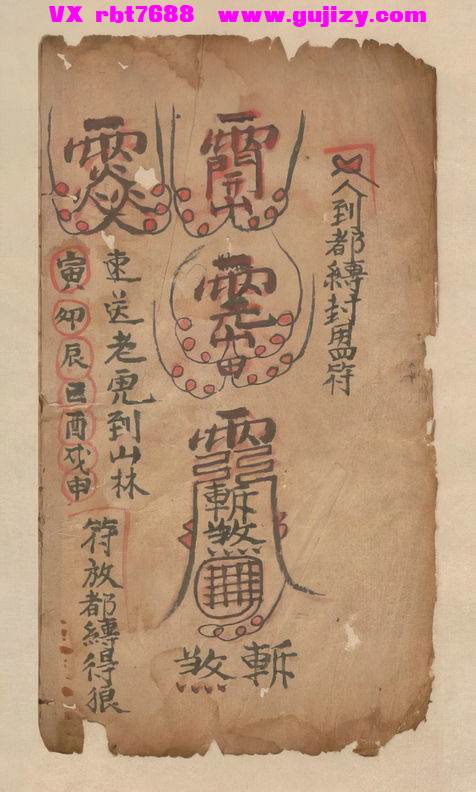 VX rbt7688 www.gujizy.com
人到都縛封符
斬煞
斬煞
送老虎到山林
寅卯辰巳酉戌申
符放都縛得狼